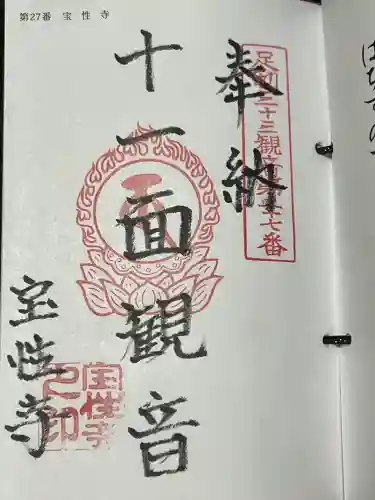 第27番 宝性寺
奉納
足利三十三観音霊場第廿七番
十一面観音
宝性寺
宝性寺之印